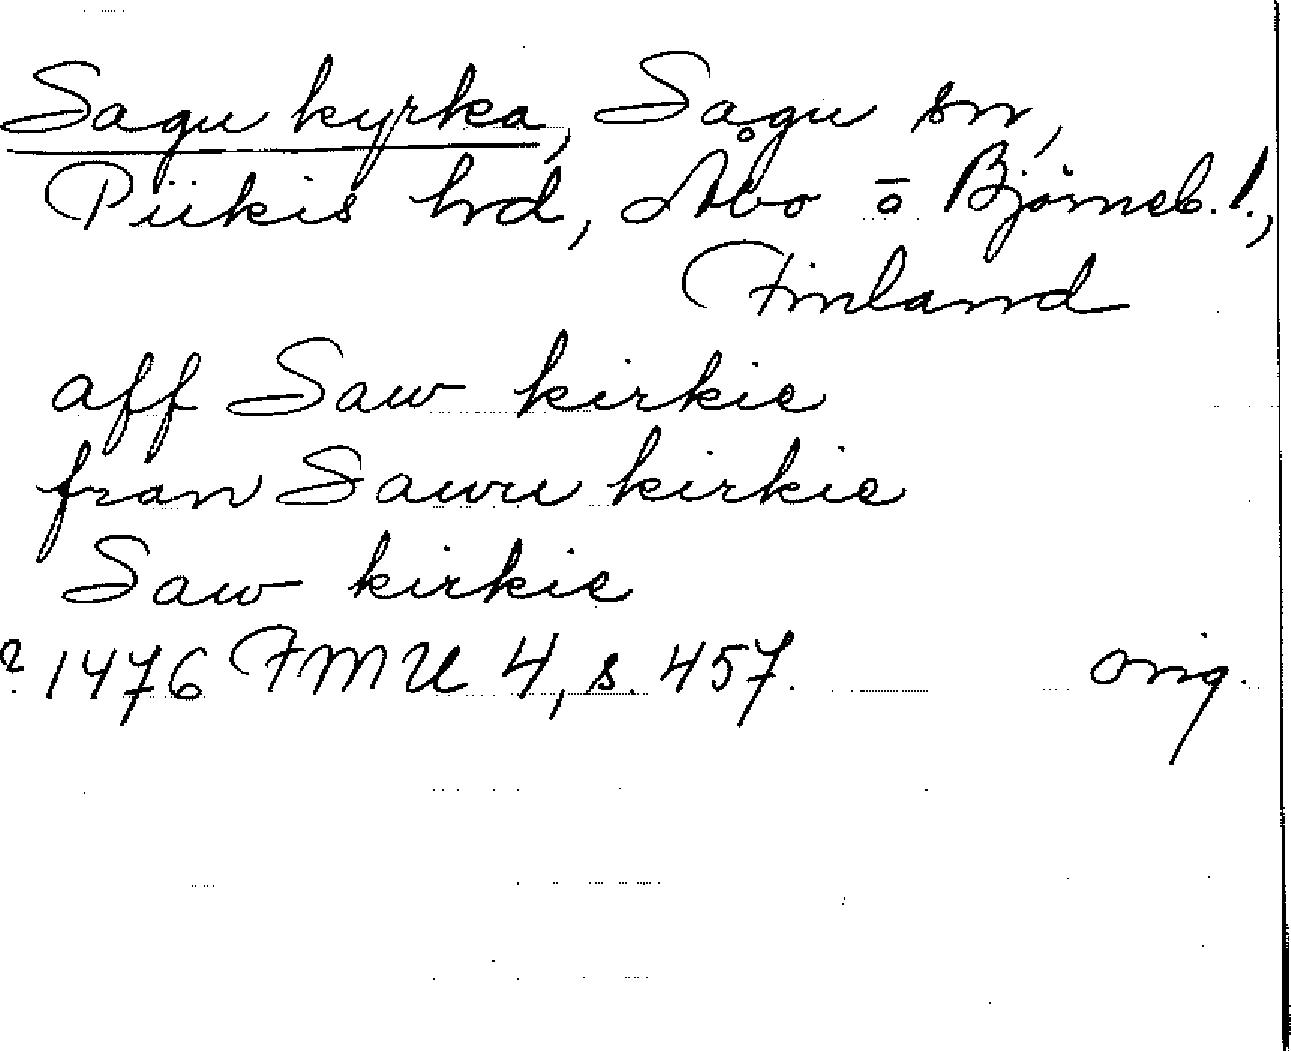 Sagu kyrka, Sagu sn,
Piikis hrd, Åbo o Björneb. l.,
Finland
aff Saw kirkie
fran Sawu kirkie
Saw kirkie
? 1476 FMU 4, s. 457. orig.